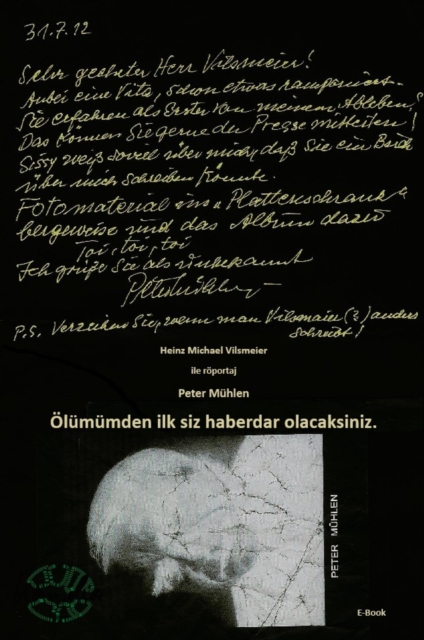 31.7.12
Sehr geehrter Herr Vilsmeier!
Anbei eine Vita, schon etwas ramponiert.
Sie erfahren als Erster von meinem Ableben,
Das können Sie gerne der Presse mitteilen!
Sissy weiß soviel über mich, daß Sie ein Buch
über mich schreiben könnte.
Fotomaterial im „Plattenschrank“
bergeweise und das Album dazu
Toi, toi, toi
Ich grüße Sie als unbekannt
Peter Mühlen
P.S. Verzeihen Sie, wenn man Vilsmaier (?) anders
schreibt!
Heinz Michael Vilsmeier
ile röportaj
Peter Mühlen
Ölümümden ilk siz haberdar olacaksiniz.
PETER MÜHLEN
E-Book